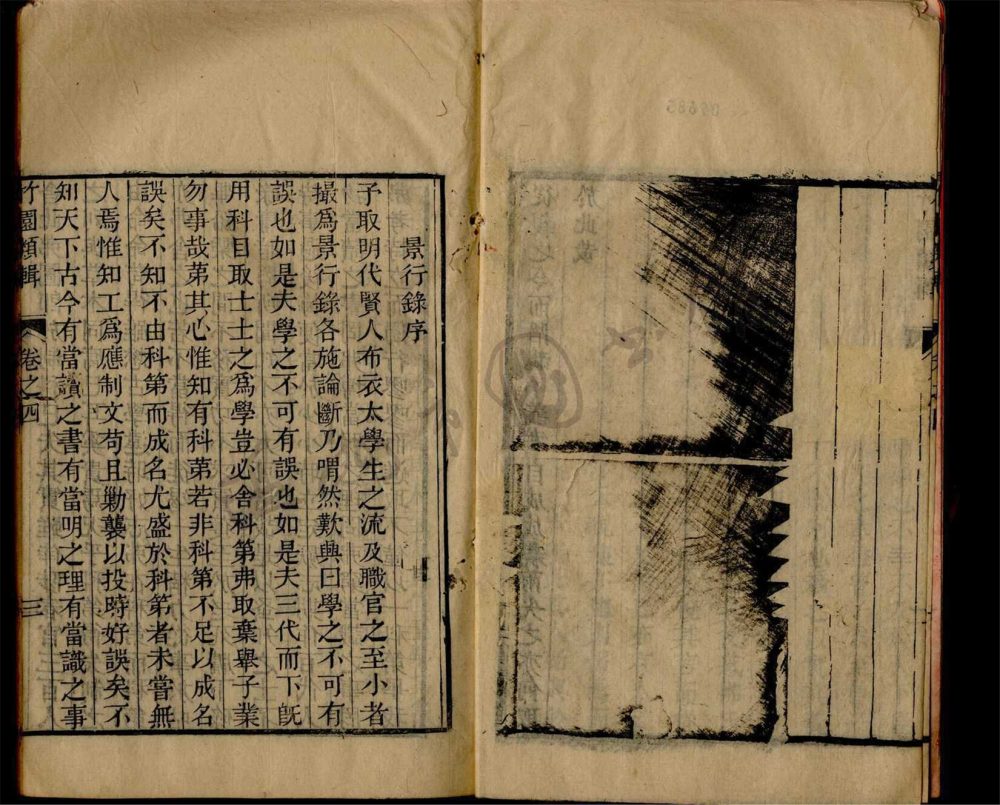 景行錄序
予取明代賢人布衣太學生之流及職官之至小者
撮爲景行錄各施論斷乃喟然歎興曰學之不可有
誤也如是夫學之不可有誤也如是夫三代而下旣
用科目取士士之爲學豈必舍科第弗取棄舉子業
勿事哉第其心惟知有科第若非科第不足以成名
誤矣不知不由科第而成名尤盛於科第者未嘗無
人焉惟知工爲應制文苟且勦襲以投時好誤矣不
知天下古今有當讀之書有當明之理有當識之事
竹園類輯 卷之四 三